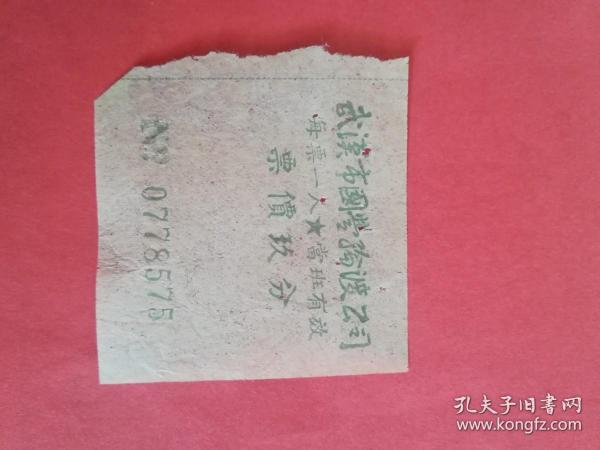 武漢市國营輪渡公司
每票一人★當班有效
票價玖分
№ 0778575
孔夫子旧书网
www.kongfz.com